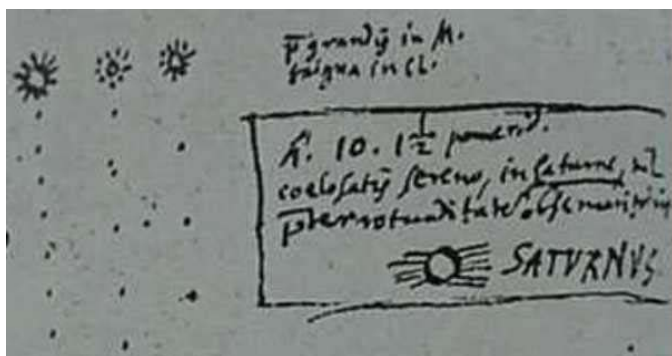 grandis in M.
in CL.
h. 10. 1 1/2 pomerid.
coelo satis sereno, in saturno, nil
p̄ter rotunditatē observavimus
SATVRNVS